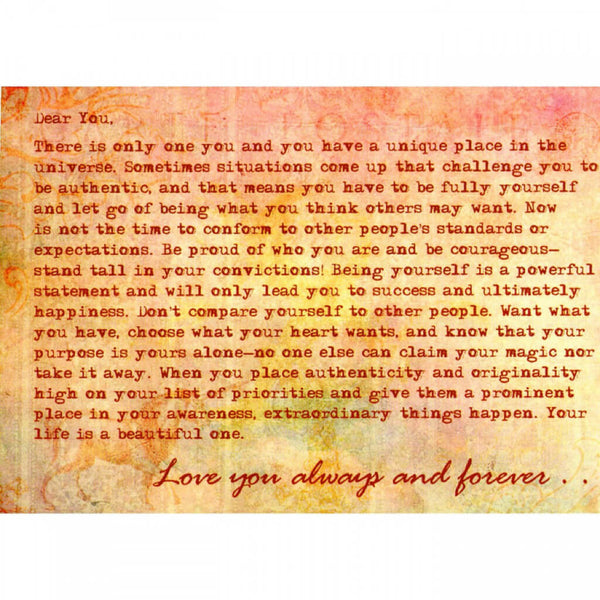 Dear You,
There is only one you and you have a unique place in the
universe. Sometimes situations come up that challenge you to
be authentic, and that means you have to be fully yourself
and let go of being what you think others may want. Now
is not the time to conform to other people's standards or
expectations. Be proud of who you are and be courageous—
stand tall in your convictions! Being yourself is a powerful
statement and will only lead you to success and ultimately
happiness. Don't compare yourself to other people. Want what
you have, choose what your heart wants, and know that your
purpose is yours alone—no one else can claim your magic nor
take it away. When you place authenticity and originality
high on your list of priorities and give them a prominent
place in your awareness, extraordinary things happen. Your
life is a beautiful one.
Love you always and forever . .